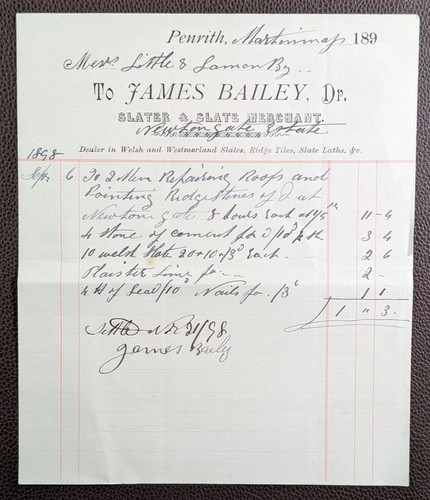 Penrith, Martinmas 189
Messrs. Little & Lamonby
To JAMES BAILEY, Dr.
SLATER & SLATE MERCHANT.
Newton gate Estate
Dealer in Welsh and Westmorland Slates, Ridge Tiles, Slate Laths, &c.
1898
Sepr 6 To 2 Men Repairing Roofs and
Pointing Ridge Stones at
Newton gate 8 hours Each at 11 - 4
4 Stone of cement for 3 4
10 welsh Slate 20 + 10 /3d Each 2 6
Plaister Lime for 2 -
4 lb of Lead /10d Nails for /3d 1 1
1 " 3
Settled Nov 21/98
James Baily